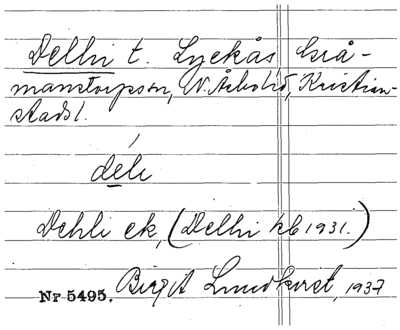 Delhi t. Lyckås Grå-
manstorpssn, N. Åsbohd, Kristian-
stads l.
déli
Dehli ek, (Delhi kb 1931.)
Nr 5495. Birgit Lundkvist, 1937